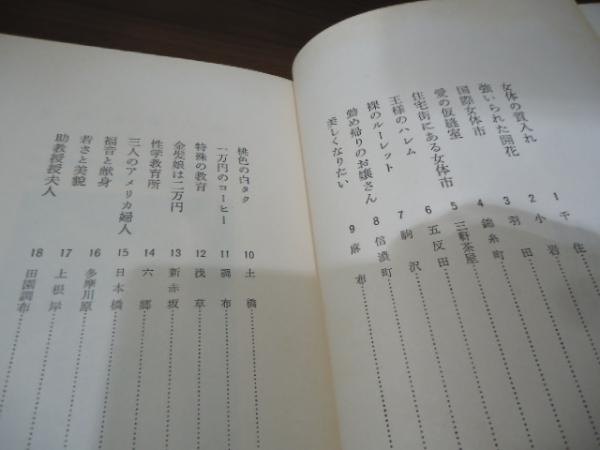 女体の質入れ
1 千住
強いられた開花
2 小岩
国際女体市
3 羽田
愛の仮縫室
4 錦糸町
住宅街にある女体市
5 三軒茶屋
王様のハレム
6 五反田
裸のルーレット
7 駒沢
勤め帰りのお嬢さん
8 信濃町
美しくなりたい
9 麻布
桃色の白タク
10 土橋
一万円のコーヒー
11 調布
特殊の教育
12 浅草
金髪娘は二万円
13 新赤坂
性学教育所
14 六郷
三人のアメリカ婦人
15 日本橋
福音と献身
16 多摩川原
若さと美貌
17 上根岸
助教授夫人
18 田園調布